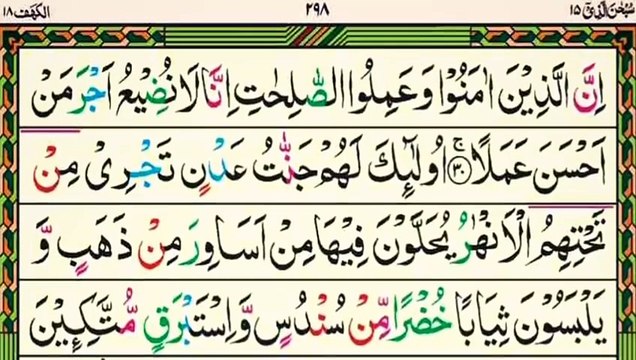 سُبْحٰنَ الَّذِیْۤ ۱۵ ۲۹۸ الکهف ۱۸
اِنَّ الَّذِیْنَ اٰمَنُوْا وَ عَمِلُوا الصّٰلِحٰتِ اِنَّا لَا نُضِیْعُ اَجْرَ مَنْ
اَحْسَنَ عَمَلًا ۚ‏﴿۳۰﴾ اُولٰٓئِكَ لَهُمْ جَنّٰتُ عَدْنٍ تَجْرِیْ مِنْ
تَحْتِهِمُ الْاَنْهٰرُ یُحَلَّوْنَ فِیْهَا مِنْ اَسَاوِرَ مِنْ ذَهَبٍ وَّ
یَلْبَسُوْنَ ثِیَابًا خُضْرًا مِّنْ سُنْدُسٍ وَّ اِسْتَبْرَقٍ مُّتَّكِـِٕیْنَ